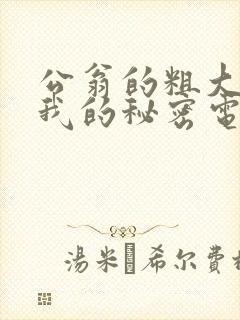 公翁的粗大
我的秘密電
湯米 希尔費